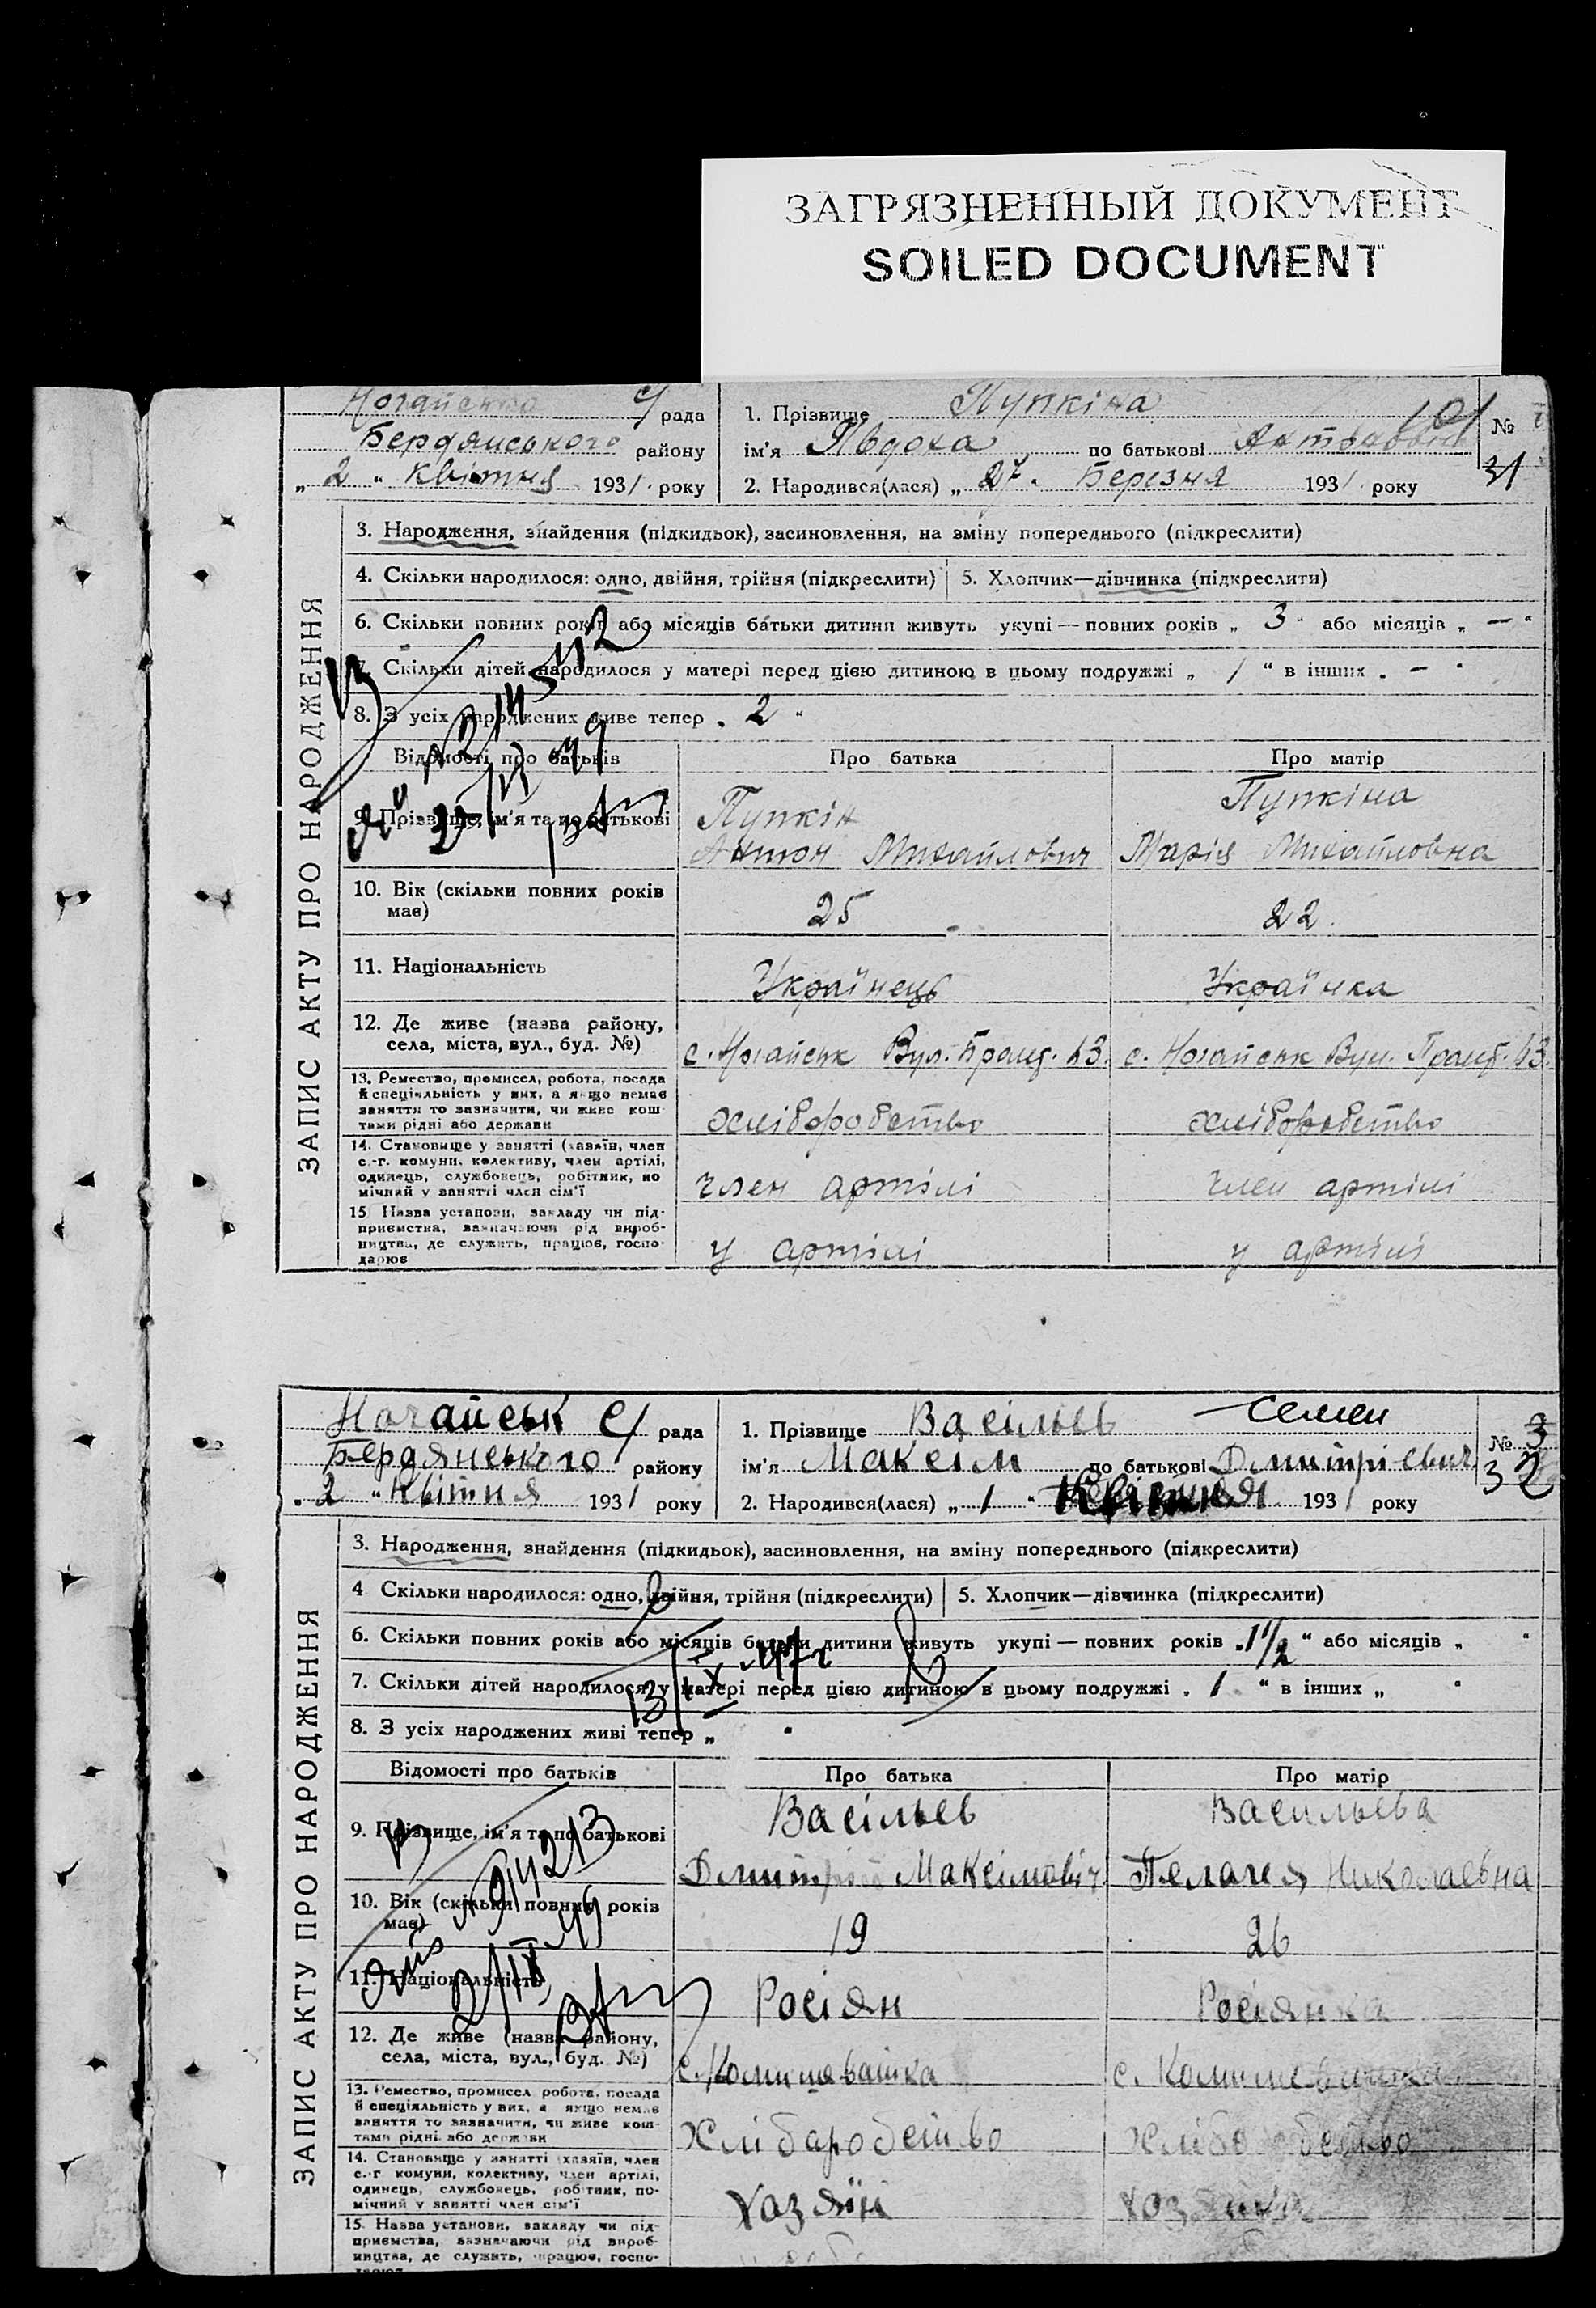 ЗАГРЯЗНЕННЫЙ ДОКУМЕНТ
SOILED DOCUMENT
с/рада
Бердянського району
„ 2 “ Квітня 1931 року
1. Прізвище Пупкіна
ім'я Явдоха по батькові
2. Народився(лася) „ 27 “ Березня 1931 року
101
№
31
ЗАПИС АКТУ ПРО НАРОДЖЕННЯ
3. Народження, знайдення (підкидьок), засиновлення, на зміну попереднього (підкреслити)
4. Скільки народилося: одно, двійня, трійня (підкреслити) 5. Хлопчик—дівчинка (підкреслити)
6. Скільки повних років або місяців батьки дитини живуть укупі — повних років „ 3 “ або місяців „ — “
7. Скільки дітей народилося у матері перед цією дитиною в цьому подружжі „ 1 “ в інших „ — “
8. З усіх народжених живе тепер „ 2 “
Відомості про батьків Про батька Про матір
9. Прізвище, ім'я та по батькові
Пупкін Пупкіна
Антон Михайлович Марія Михайловна
10. Вік (скільки повних років має) 25 22
11. Національність Українець Українка
12. Де живе (назва району,
села, міста, вул., буд. №)
с. Ногайськ Вул. с. Ногайськ Вул.
13. Ремество, промисел, робота, посада
й спеціяльність у них, а якщо немає
заняття то зазначити, чи живе кош-
тами рідні або держави
хліборобство хліборобство
14. Становище у занятті (хазяїн, член
с.-г. комуни, колективу, член артілі,
одинець, службовець, робітник, по-
мічний у занятті член сім'ї
член артілі член артілі
15. Назва установи, закладу чи під-
приємства, зазначаючи рід вироб-
ництва, де служить, працює, госпо-
дарює
у артілі у артілі
Ногайськ с/рада
Бердянського району
„ 2 “ Квітня 1931 року
1. Прізвище Васільев Семен
ім'я Максім по батькові Дмитрієвич
2. Народився(лася) „ 1 “ Квітня 1931 року
№
32
ЗАПИС АКТУ ПРО НАРОДЖЕННЯ
3. Народження, знайдення (підкидьок), засиновлення, на зміну попереднього (підкреслити)
4 Скільки народилося: одно, двійня, трійня (підкреслити) 5. Хлопчик—дівчинка (підкреслити)
6. Скільки повних років або місяців батьки дитини живуть укупі — повних років „ 1 1/2 “ або місяців „ “
7. Скільки дітей народилося у матері перед цією дитиною в цьому подружжі „ 1 “ в інших „ “
8. З усіх народжених живі тепер „ “
Відомості про батьків Про батька Про матір
9. Прізвище, ім'я та по батькові
Васільев Васильева
Дмитрій Максімовіч Пелагея Николаевна
10. Вік (скільки повних років
має)
19 26
11. Національність Росіян Росіянка
12. Де живе (назва району,
села, міста, вул., буд. №)
с. Комишеватка с.
13. Ремество, промисел робота, посада
й спеціяльність у них, а якщо немає
заняття то зазначити, чи живе кош-
тами рідні або держави
Хлібаробство
14. Становище у занятті хазяїн, член
с.-г комуни, колективу, член артілі,
одинець, службовець, робітник, по-
мічний у занятті член сім'ї
Хазяїн хазяйка
15. Назва установи, закладу чи під-
приємства, зазначаючи рід вироб-
ництва, де служить, працює, госпо-